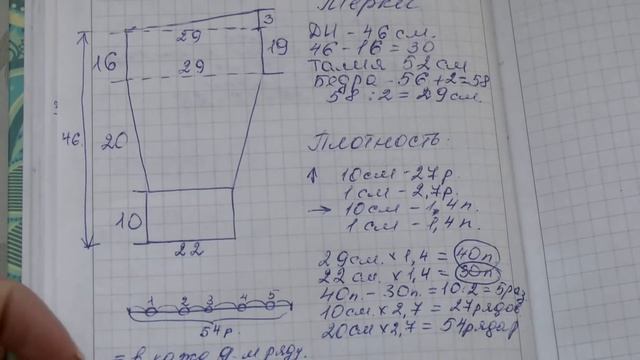 Мерки
3
29
16
19
29
46
20
10
22
ДИ - 46 см.
46 - 16 = 30
Талия 52 см
Бедра - 56 + 2 = 58
58 : 2 = 29 см.
Плотность.
↑ 10 см - 27 р.
1 см - 2,7 р.
→ 10 см - 1,4 п.
1 см - 1,4 п.
29 см. × 1,4 = 40п
22 см. × 1,4 = 30п
40п. - 30п. = 10 : 2 = 5 раз
10 см × 2,7 = 27 рядов
20 см × 2,7 = 54 рядор
1 2 3 4 5
54 р.
= в каждом ряду.